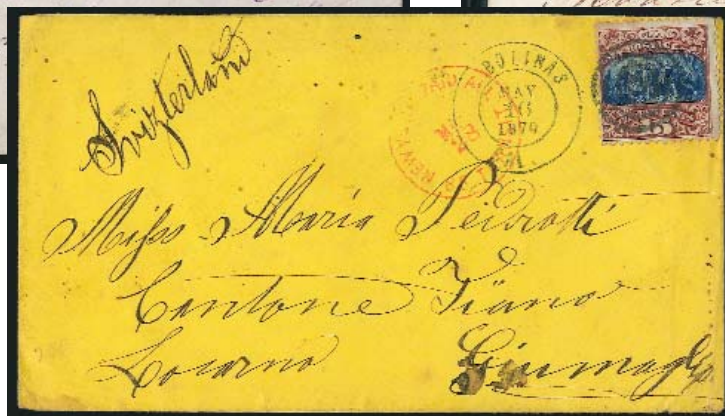 Svizterland
BOLINAS
MAY
1870
CAL.
NEW
Miss Maria Pedrotti
Cantone Ticino
Locarno Giumaglio
15